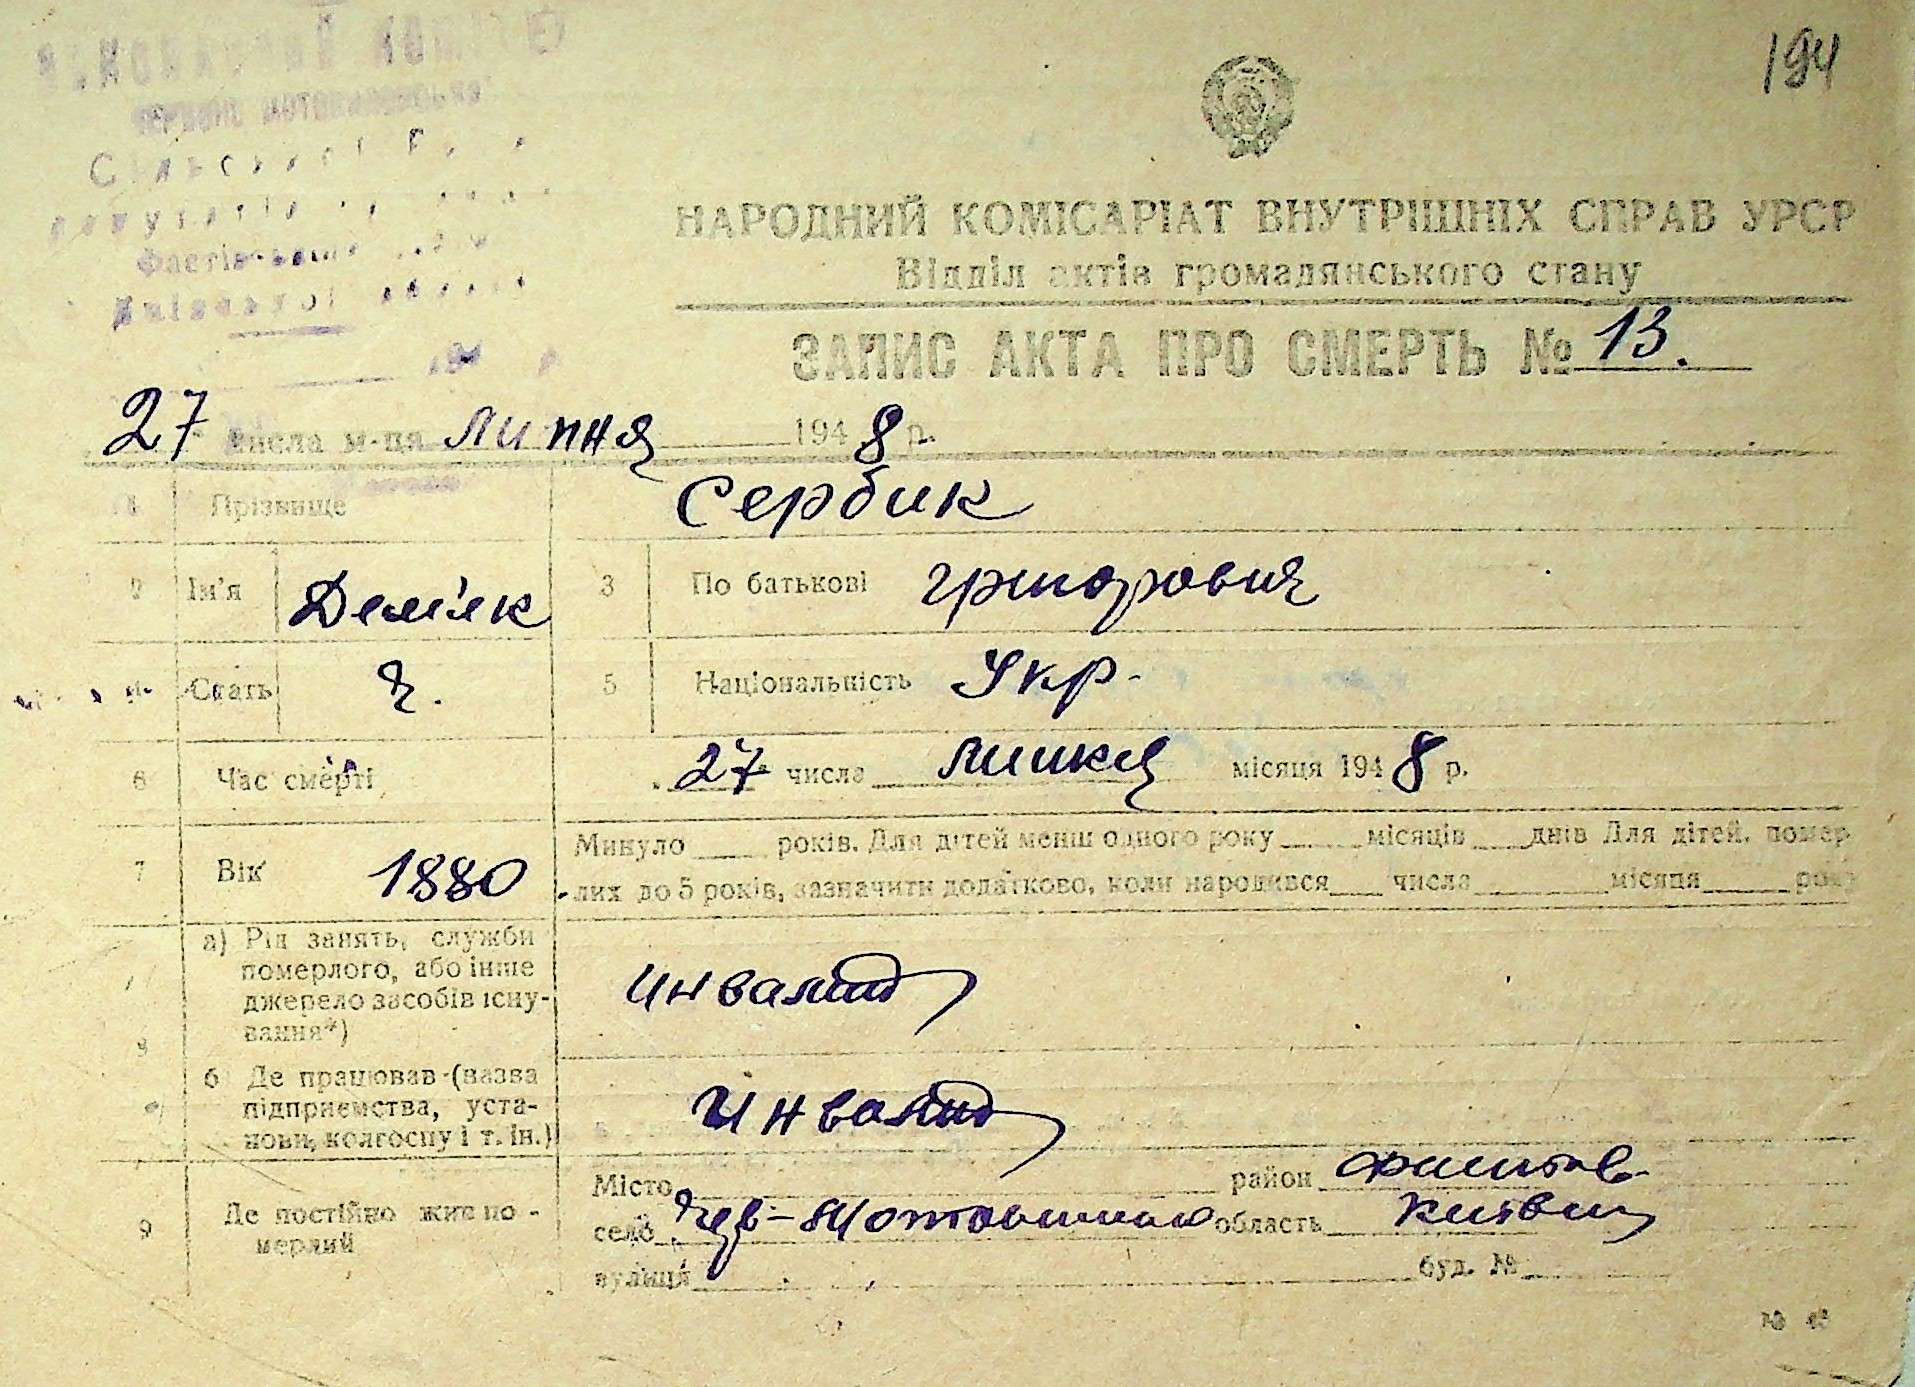 194
Сільської
депутатів
Фастівського
Київської
НАРОДНИЙ КОМІСАРІАТ ВНУТРІШНІХ СПРАВ УРСР
Відділ актів громадянського стану
ЗАПИС АКТА ПРО СМЕРТЬ № 13.
27 числа м-ця липня 1948 р.
1 Прізвище Сербик
2 Ім'я Дем'як 3 По батькові Григорович
4 Стать ч. 5 Національність Укр.
6 Час смерті 27 числа липня місяця 1948 р.
7 Вік 1880 Минуло ___ років. Для дітей менш одного року ___ місяців ___ днів Для дітей, помер-
лих до 5 років, зазначити додатково, коли народився ___ числа ___ місяця ___ року
8 а) Рід занять, служби
померлого, або інше
джерело засобів існу-
вання*) Инвалид
б Де працював (назва
підприємства, уста-
нови, колгоспу і т. ін.) Инвалид
9 Де постійно жив по-
мерлий
Місто ___ район Фастов
село Чер-Мотовилово область Київськ
вулиця ___ буд. № ___